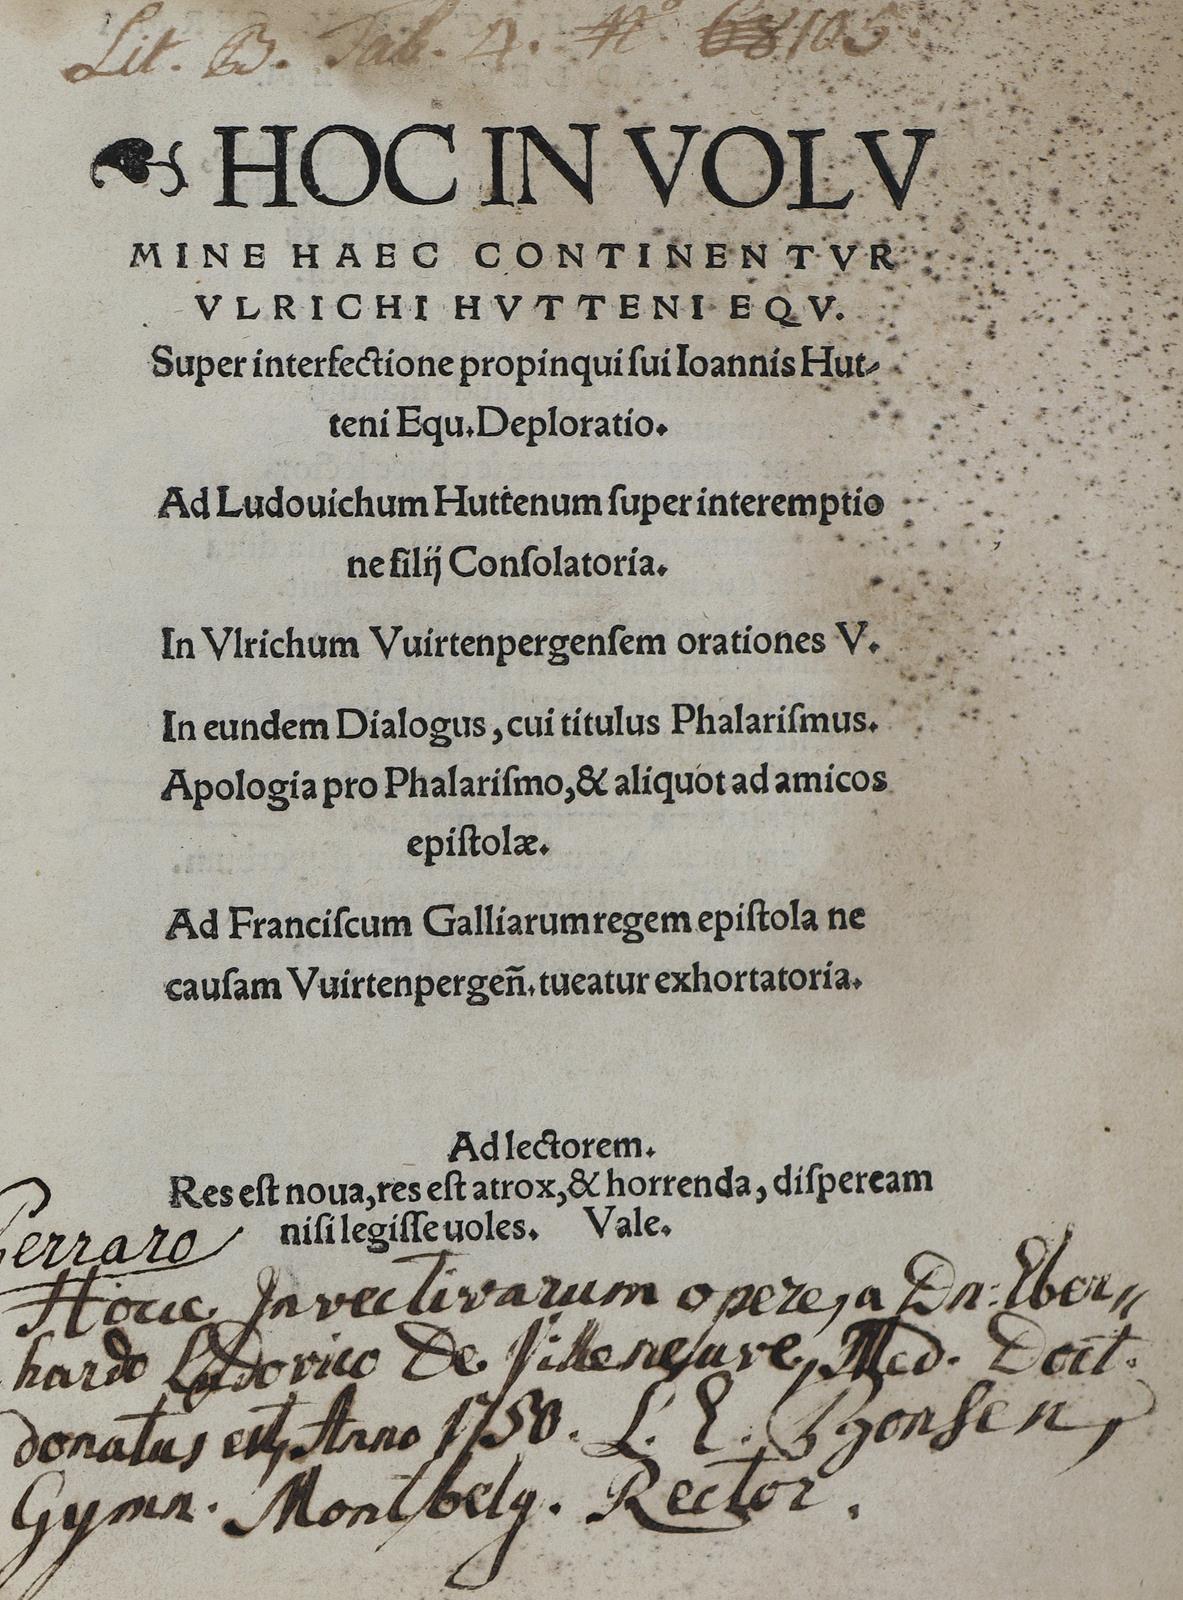 Lit. B. Tab. 4. N.° 105
HOC IN VOLV
MINE HAEC CONTINENTVR
VLRICHI HVTTENI EQV.
Super interfectione propinqui ſui Ioannis Hut-
teni Equ. Deploratio.
Ad Ludouichum Huttenum ſuper interemptio
ne filij Conſolatoria.
In Vlrichum Vuirtenpergenſem orationes V.
In eundem Dialogus, cui titulus Phalariſmus.
Apologia pro Phalariſmo, & aliquot ad amicos
epiſtolæ.
Ad Franciſcum Galliarum regem epiſtola ne
cauſam Vuirtenpergen̄. tueatur exhortatoria.
Ad lectorem.
Res eſt noua, res eſt atrox, & horrenda, diſpeream
niſi legiſſe uoles. Vale.
Ferraro
Hocce Invectivarum opere, a Dn. Eber,,
hardo Ludovico De Villeneuve, Med. Doct.
donatus est, Anno 1750. L. E.
Gymn. Montbelg. Rector.